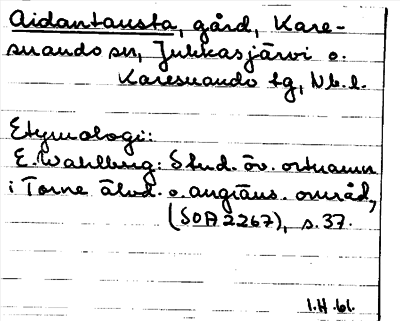 Aidantausta, gård, Kare-
suando sn, Jukkasjärvi o.
Karesuando tg, Nb. l.
Etymologi:
E. Wahlberg: Stud. öv. ortnamn
i Torne älvd. o. angräns. områd,
(SOA 2267), s. 37.
1.H.61.